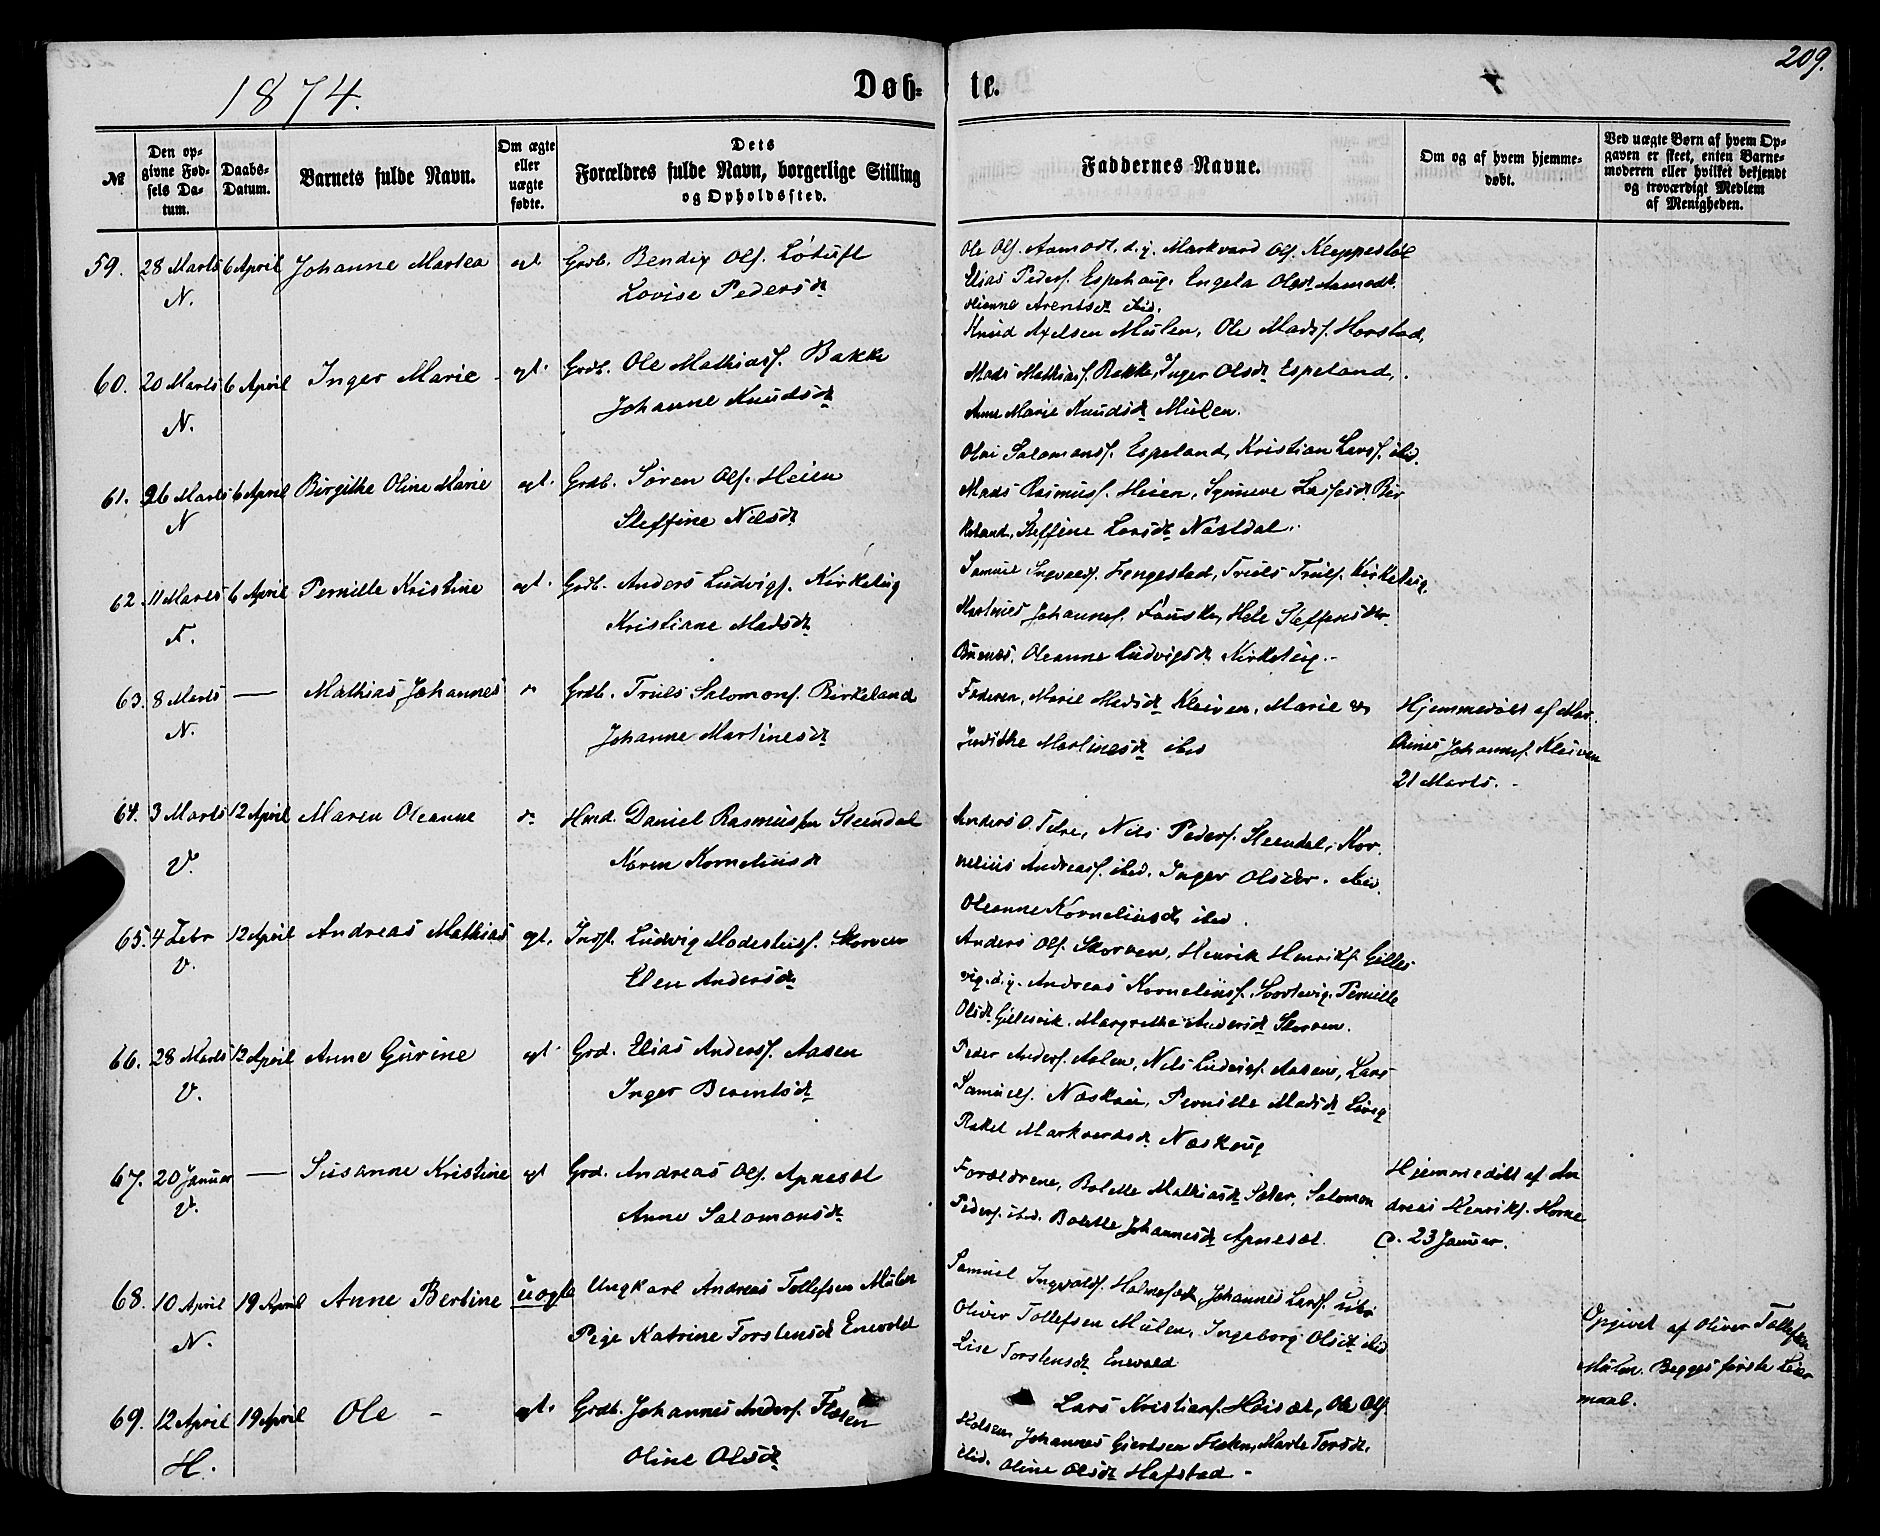 209.
1874.
Døb- te.
№
Den opgivne Fødsels Datum.
Daabs-Datum.
Barnets fulde Navn.
Om ægte eller uægte fødte.
Dets Forældres fulde Navn, borgerlige Stilling og Opholdssted.
Faddernes Navne.
Om og af hvem hjemmedøbt.
Ved uægte Børn af hvem Opgaven er skeet, enten Barnemoderen eller hvilket bekjendt og troværdigt Medlem af Menigheden.
59. 28 Marts 6 April Johanne Martea ægt Grdb. Bendix Ols. Løtuft
N. Lovise Pedersdr
Ole Ols. Aamodt. d. y. Markvard Ols. Kleppestøl
Elias Peders. Espehaug. Engela Olsdr Aamodt.
Arentsdr ibid.
60. 20 Marts 6 April Inger Marie - ægt. Grdb. Ole Mathiass. Bakke
N. Johanne Knudsdr
Knud Axelsen Mulen, Ole Mads. Horstad,
Mads Mathiass. Bakke, Inger Olsdr Espeland,
Anne Marie Knudsdr Mulen.
61. 26 Marts 6 April Birgithe Oline Marie ægt. Grdb. Søren Ols. Heien
N Steffine Nilsdr
Olai Salomons. Espeland, Kristian Lars. ibid.
Mads Rasmuss. Heien, Synneve Lassesdr Bir
keland, Steffine Larsdr Nastdal.
62. 11 Marts 6 April Pernille Kristine ægt. Grdb. Anders Ludvigs. Kirketeig
N. Kristiane Madsdr
Samuel Ingvalds. Fengestad, Truls Truls. Kirketeig,
Martines Johannes. Fauske, Hele Steffensdtr
Oleanne Ludvigsdr Kirketeig. -
63. 8 Marts — Mathias Johannes " Grdb. Truls Salomons. Birkeland
N. Johanne Martinesdr
Faderen, Marie Madsdr Kleiven, Marie &
Judithe Martinesdr ibid
Hjemmedøbt af Mar-
thines Johannes. Kleiven
21 Marts. -
64. 3 Marts 12 April Maren Oleanne " Hmd. Daniel Rasmussen Steendal
V. Karen Korneliusdr
Anders O. Nils Peders. Steendal, Kor-
nelius Andreass. ibid. Inger Olsdtr. ibid.
Oleanne Korneliusdr ibid.
65. 4 Febr 12 April Andreas Mathias ægt. Indst. Ludvig Modestuss. Skorven
V. Elen Andersdr
Anders Ols. Skorven, Henrik Henriks. Gilles
vig. d. y. Andreas Kornelius. Svortevig, Pernille
Olsdr Gillesvik. Margrethe Andersdr Skorven.
66. 28 Marts 12 April Anne Gurine ægt Grd. Elias Anders. Aasen
V. Inger Berentsdr
Peder Anders. Aasen, Nils Ludvigs. Aasen, Lars
Samuels. Naskoug, Pernille Madsdr
Rakel Markvardsdr Naskoug
67. 20 Januar — Susanne Kristine ægt Grd. Andreas Ols. Apneset
V. Anne Salomonsdr
Forældrene, Bolette Mathiasdr Sæter, Salomon
Peders. ibid. Bolette Johannesdr Apneset.
Hjemmedøbt af An
dreas Henriks. Horne
c. 23 Januar.
68. 10 April 19 April Anne Bertine uægte Ungkarl Andreas Tollefsen Mulen
N. Pige Katrine Torstensdr Enevold
Samuel Ingvalds. Holmesæt, Johannes Lars.
Oliver Tollefsen Mulen, Ingeborg Olsdr ibid
Lise Torstensdr Enevold
Opgivet af Oliver Tollefsen
Mulen. Begges første Leier
maal.
69. 12 April 19 April Ole - ægt. Grdb. Johannes Anders. Flæten
H. Oline Olsdr
Lars Kristians. Høisæt, Ole Ols.
Johannes Giertsen Flæten, Marte Torsdr,
ibid. Oline Olsdr Hafstad -